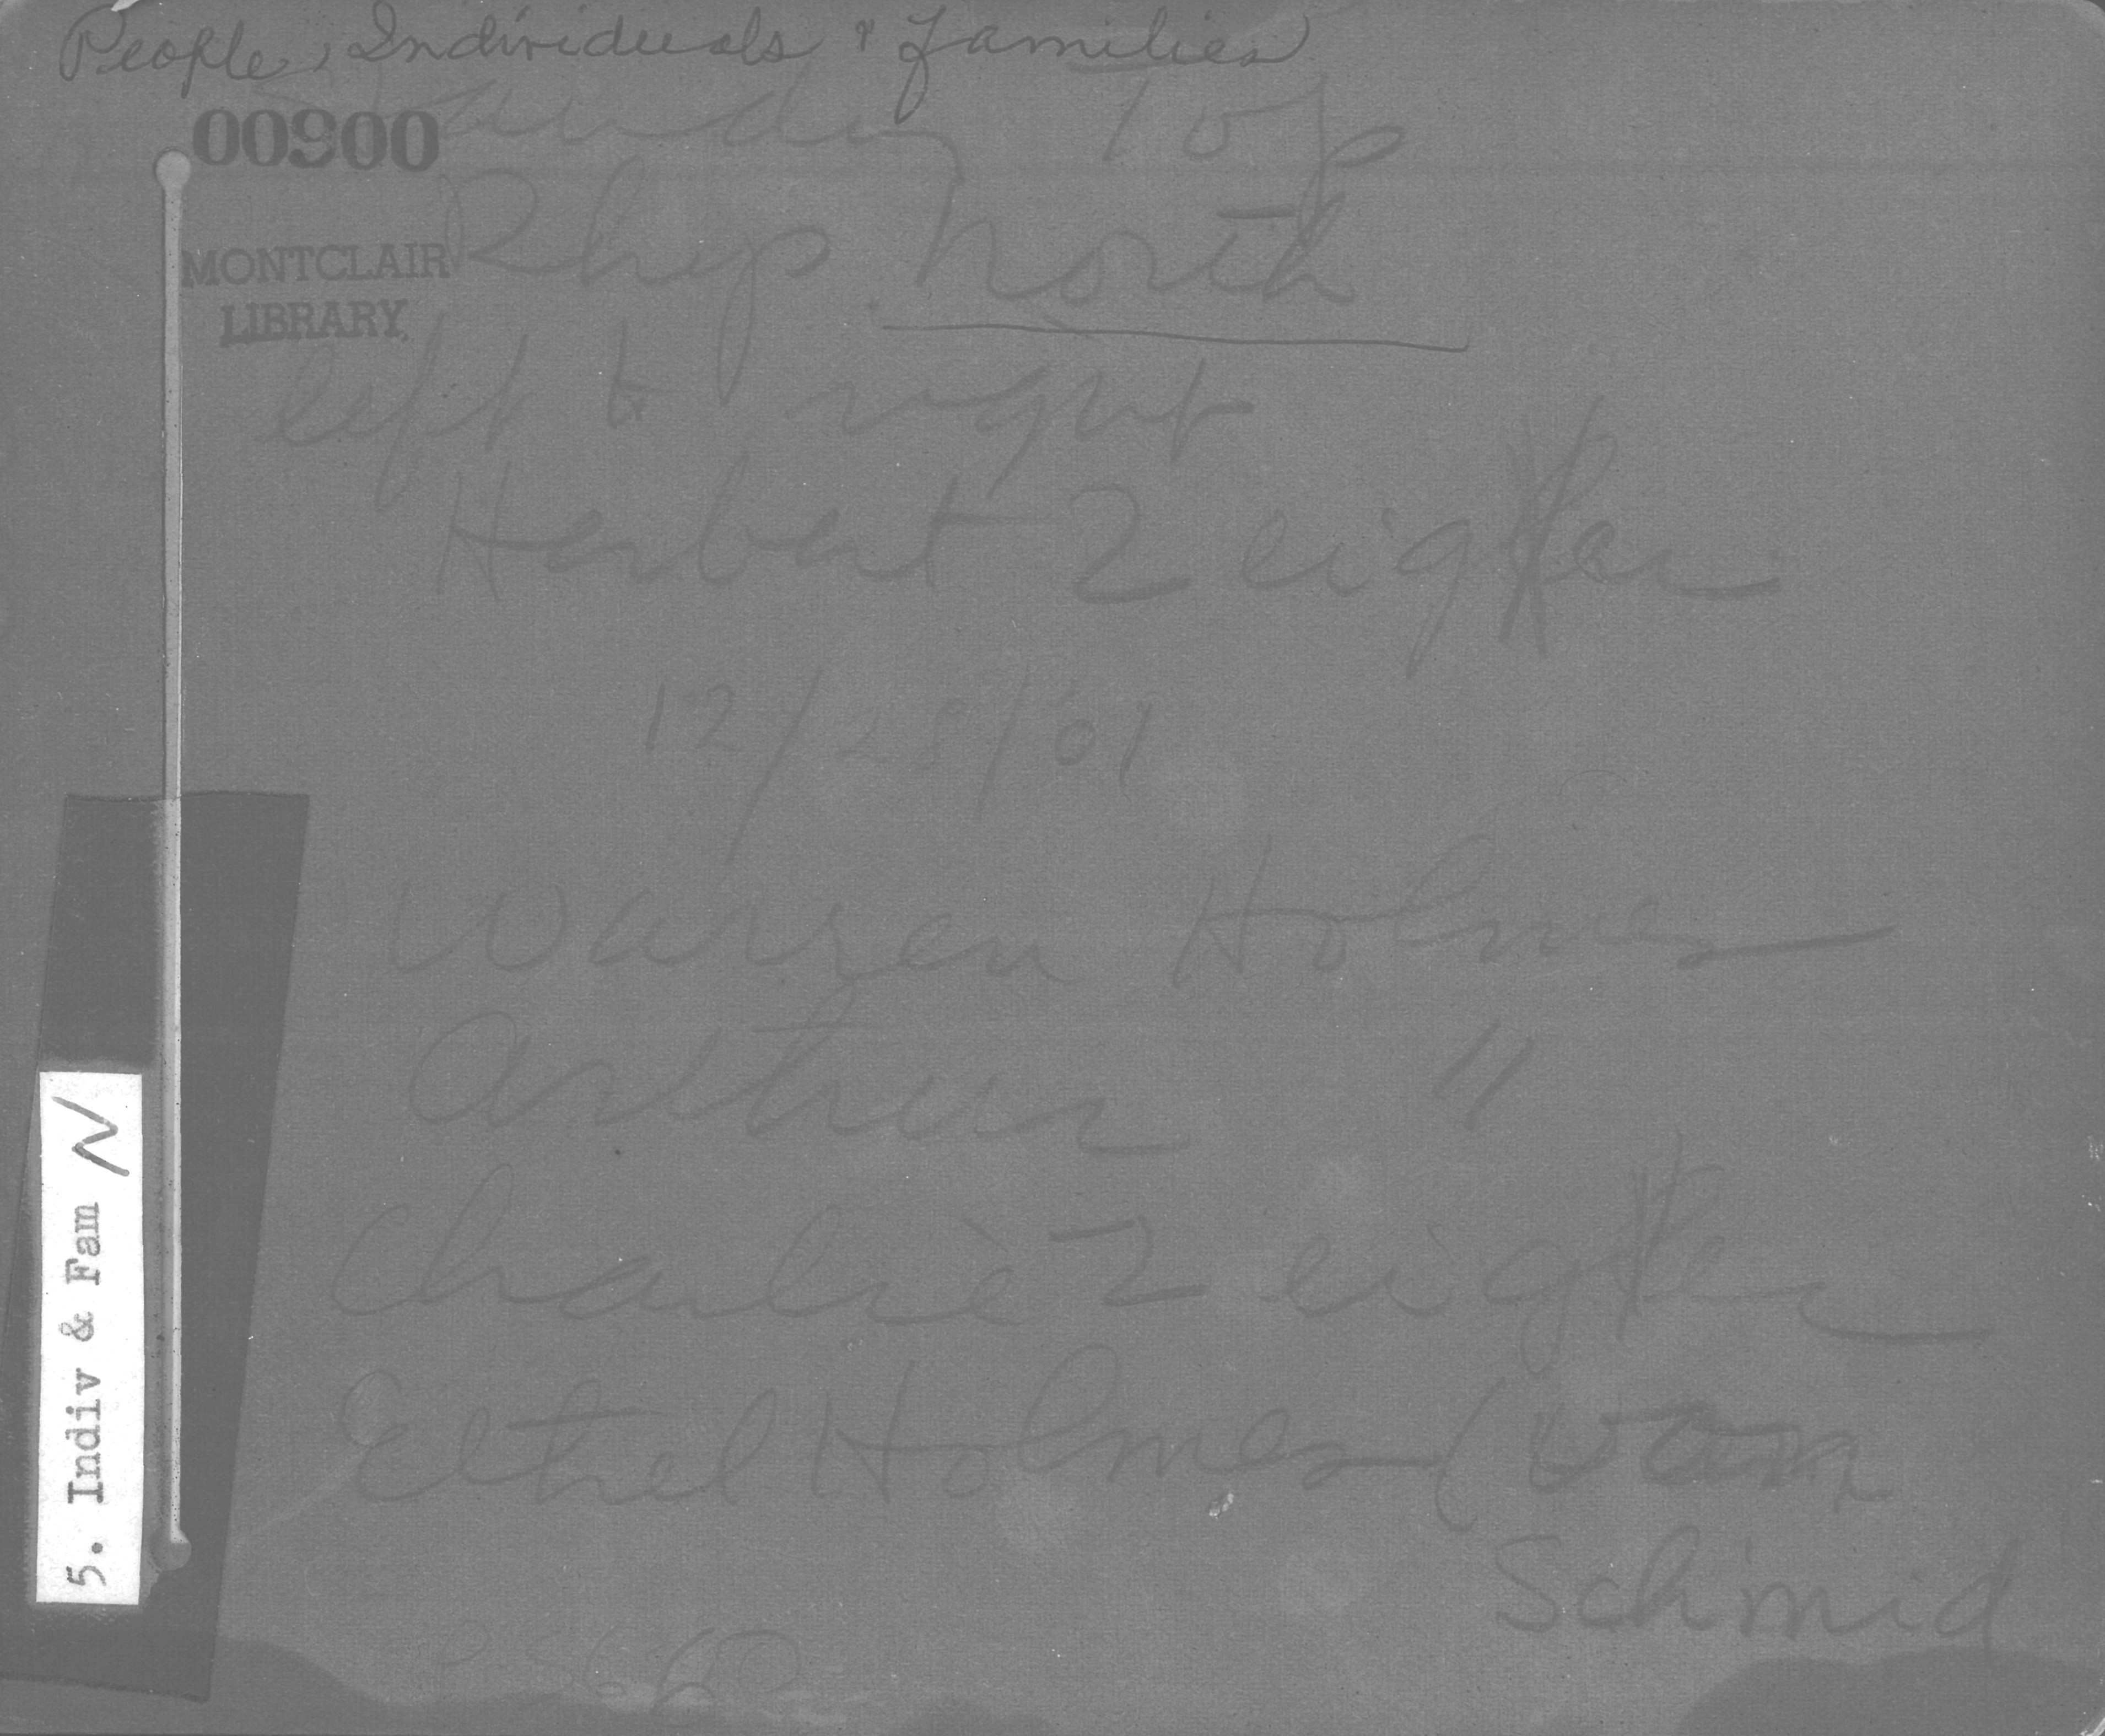 People, Individuals & families
00900
Standing Top
MONTCLAIR
LIBRARY
North
left to right
Herbert Zeigler
12/28/01
Warren Holmes
Arthur "
Charlie Zeigler
Ethel Holmes (Van
Schmid
5. Indiv & Fam N